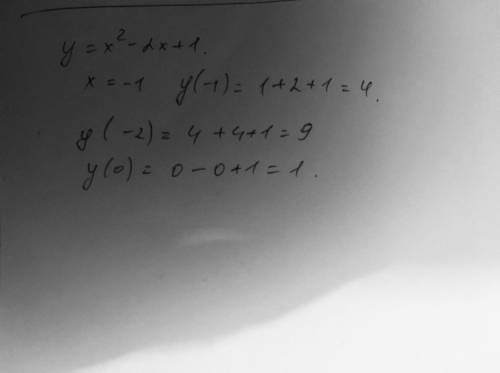 y = x² - 2x + 1.
x = -1 y(-1) = 1 + 2 + 1 = 4.
y(-2) = 4 + 4 + 1 = 9
y(0) = 0 - 0 + 1 = 1.